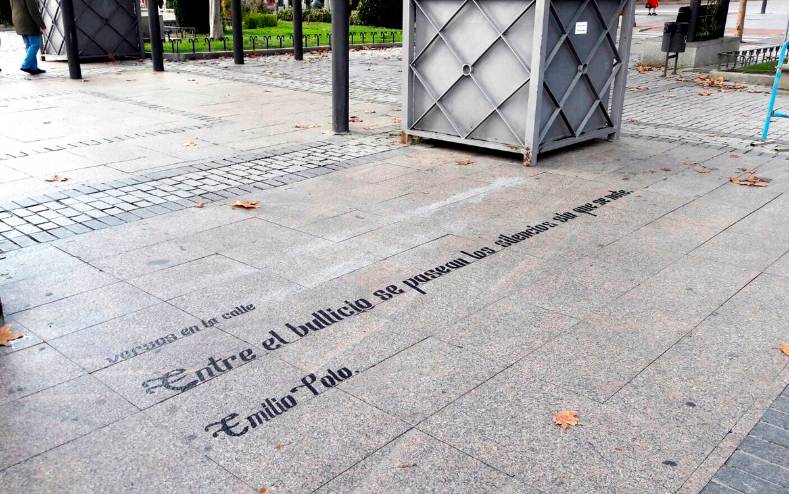 versos en la calle
Entre el bullicio se pasean los silencios sin que se note.
Emilio Polo.